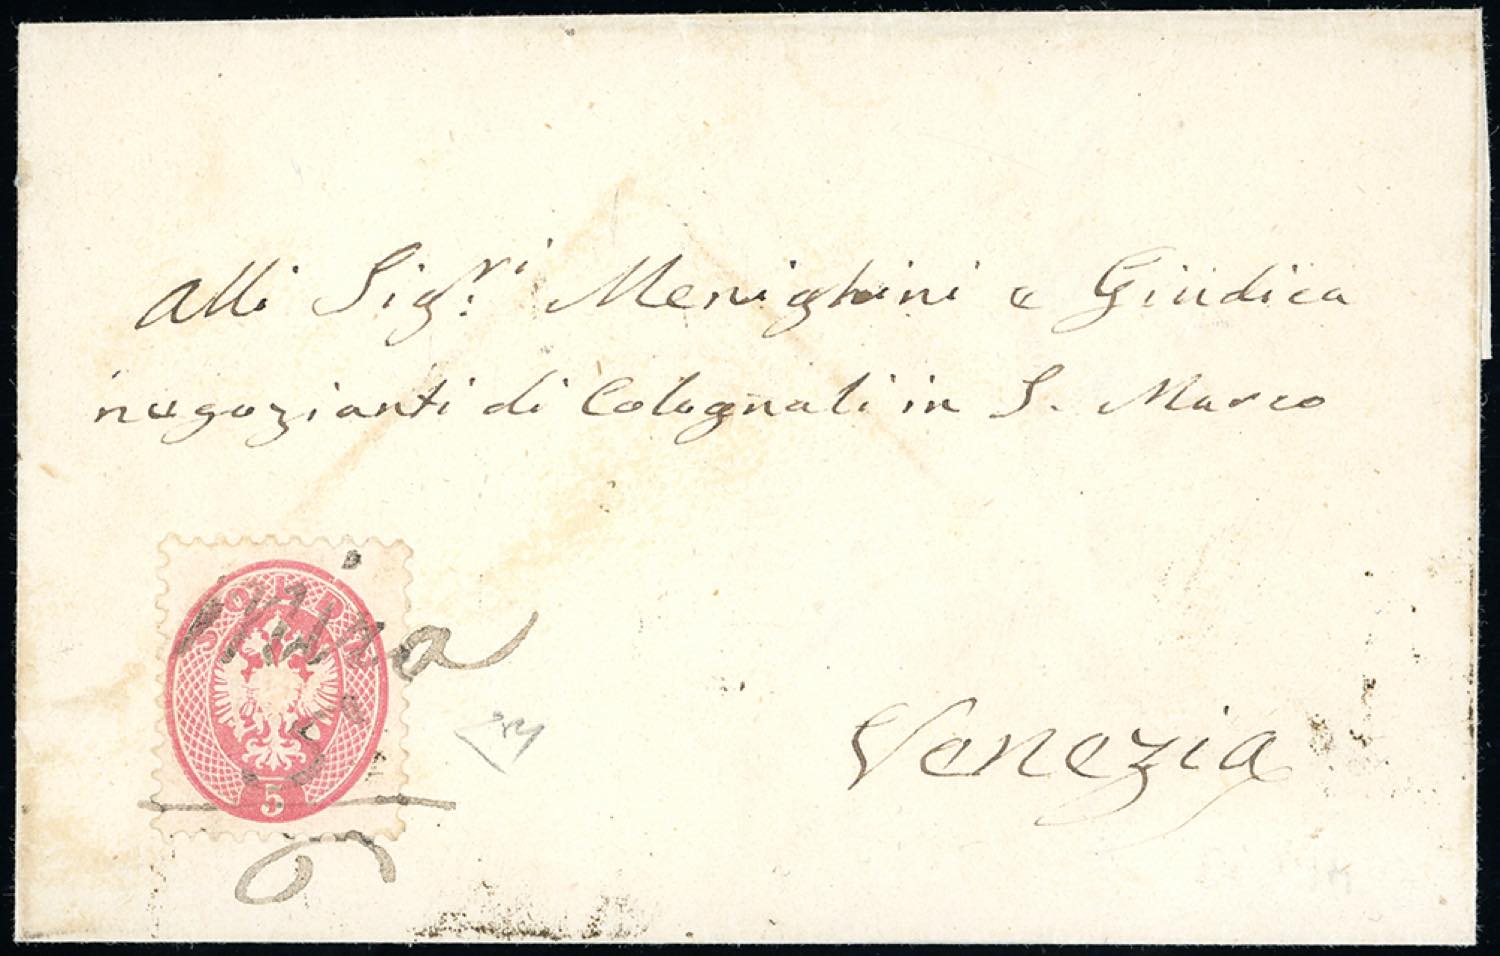 Alli Sig.ri Menighini e Giudica
negozianti di Colognali in S. Marco
SOLDI
5
Venezia